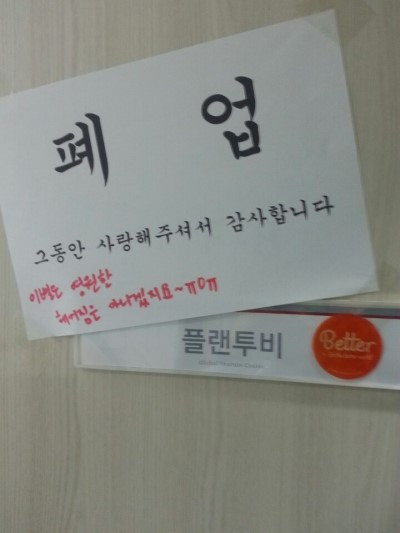 폐 업
그동안 사랑해주셔서 감사합니다
이별은 영원한
헤어짐은 아니겠지요~ㅠㅁㅠ
플랜투비
Better